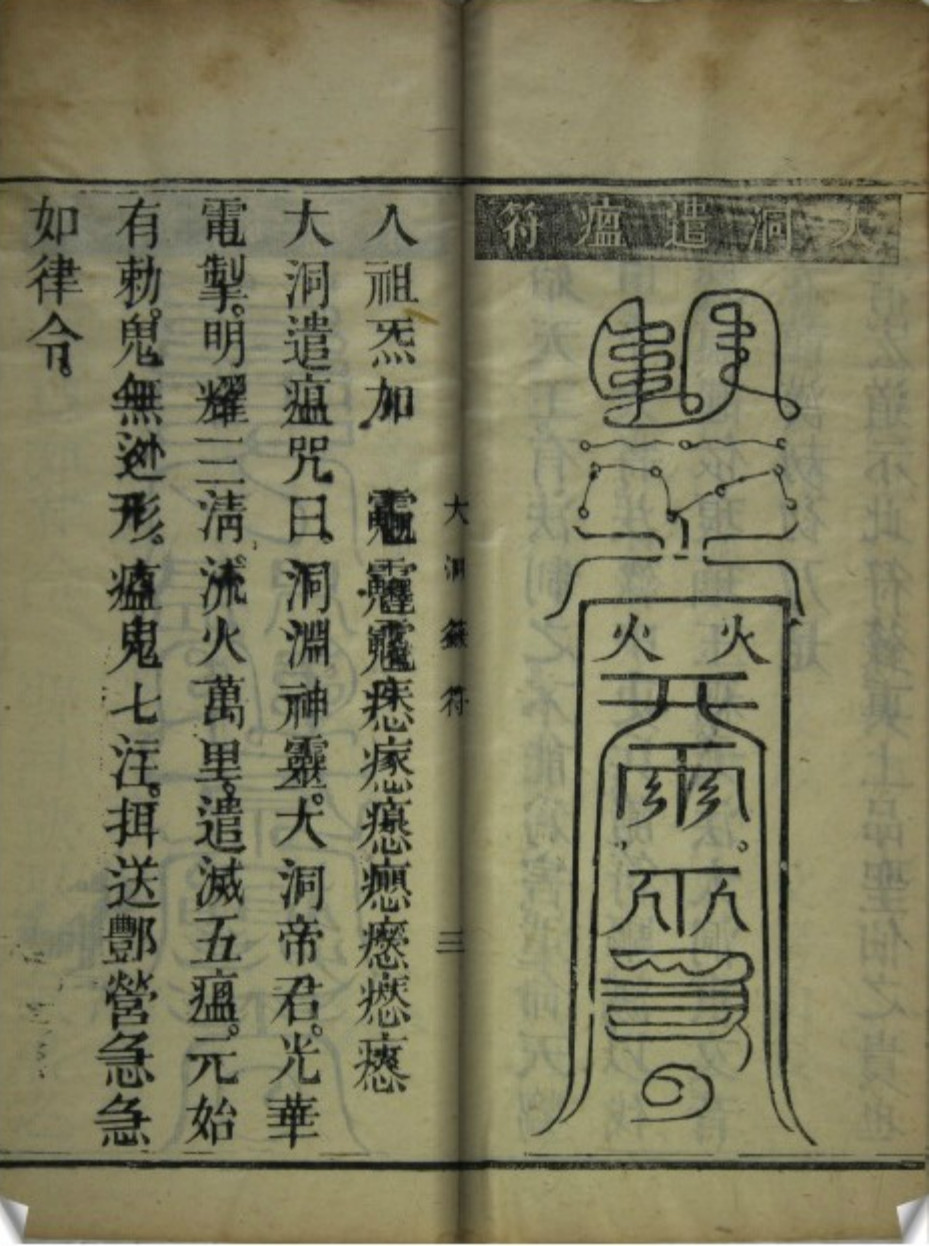 大洞遣瘟符
火 火
大洞籙符 三
人祖炁加
大洞遣瘟咒曰。洞淵神靈。大洞帝君。光華
電掣。明耀三清。流火萬里。遣滅五瘟。元始
有勅。鬼無逃形。瘟鬼七注。押送酆營。急急
如律令。